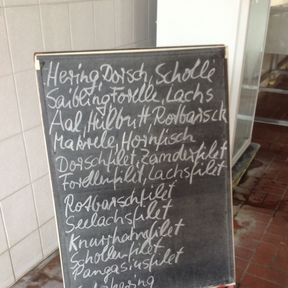 Hering, Dorsch, Scholle
Saibling Forelle, Lachs
Aal, Hilbutt Rotbarsck
Makrele, Hornfisch
Dorschfilet, Zanderfilet
Forellenfilet, Lachsfilet
Rotbarschfilet
Seelachsfilet
Knurrhahnfilet
Schollenfilet
Pangasiusfilet